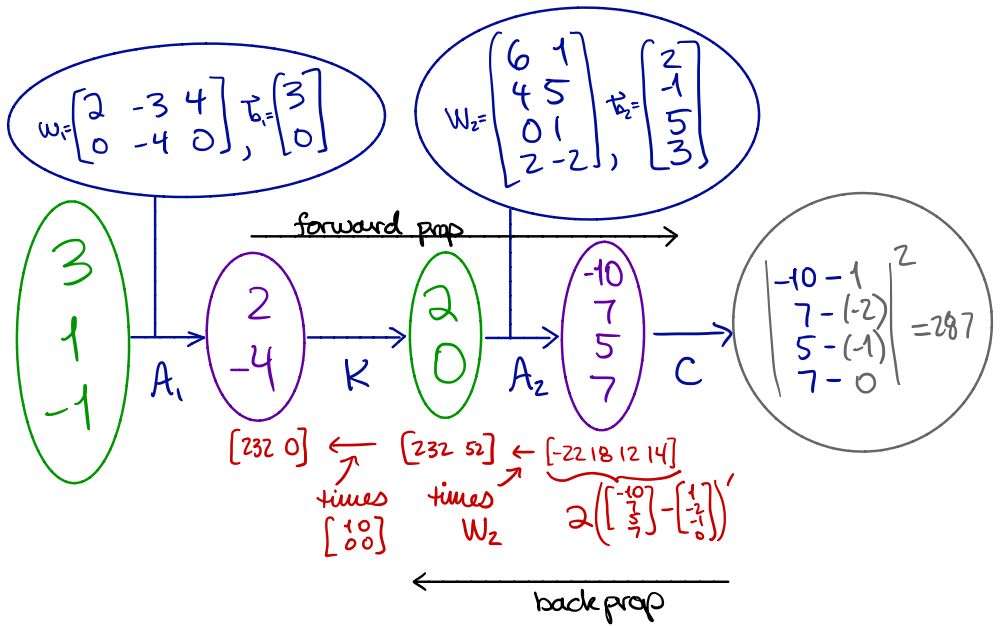 W₁=[2 -3 4
0 -4 0], b⃗₁=[3
0]
W₂=[6 1
4 5
0 1
2 -2], b⃗₂=[2
-1
5
3]
forward prop
3
1
-1
A₁
2
-4
K
2
0
A₂
-10
7
5
7
C
|-10 - 1
7 - (-2)
5 - (-1)
7 - 0|² = 287
[232 0] ← [232 52] ← [-22 18 12 14]
times
[1 0
0 0]
times
W₂
2([-10
7
5
7] - [1
-2
-1
0])'
backprop